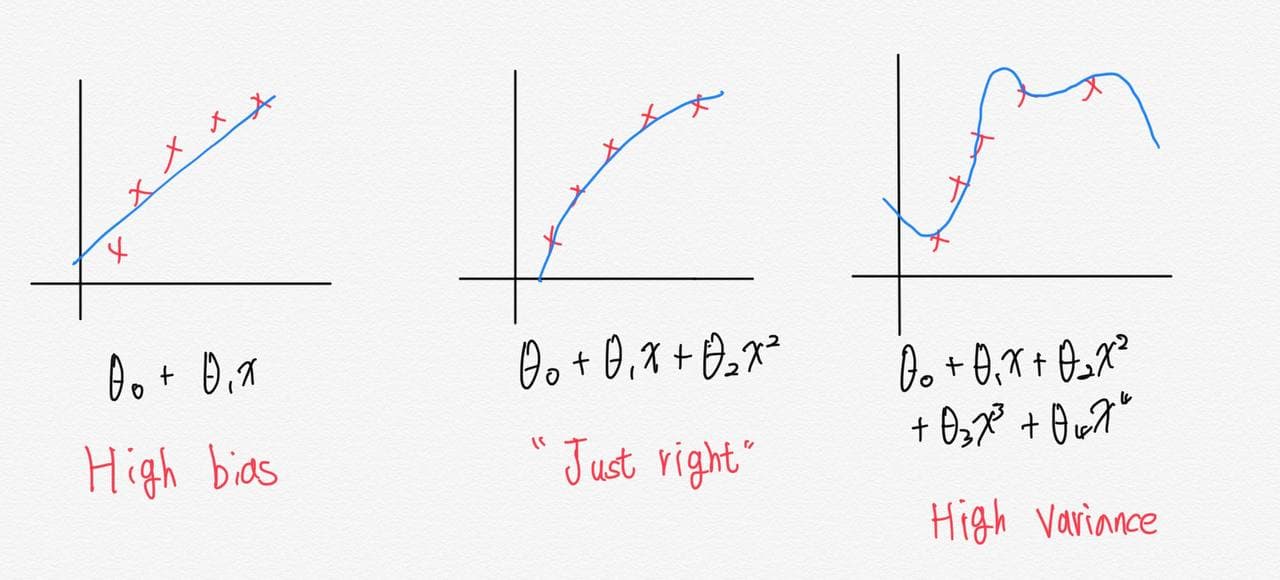 θ₀ + θ₁x
High bias
θ₀ + θ₁x + θ₂x²
"Just right"
θ₀ + θ₁x + θ₂x²
+ θ₃x³ + θ₄x⁴
High variance